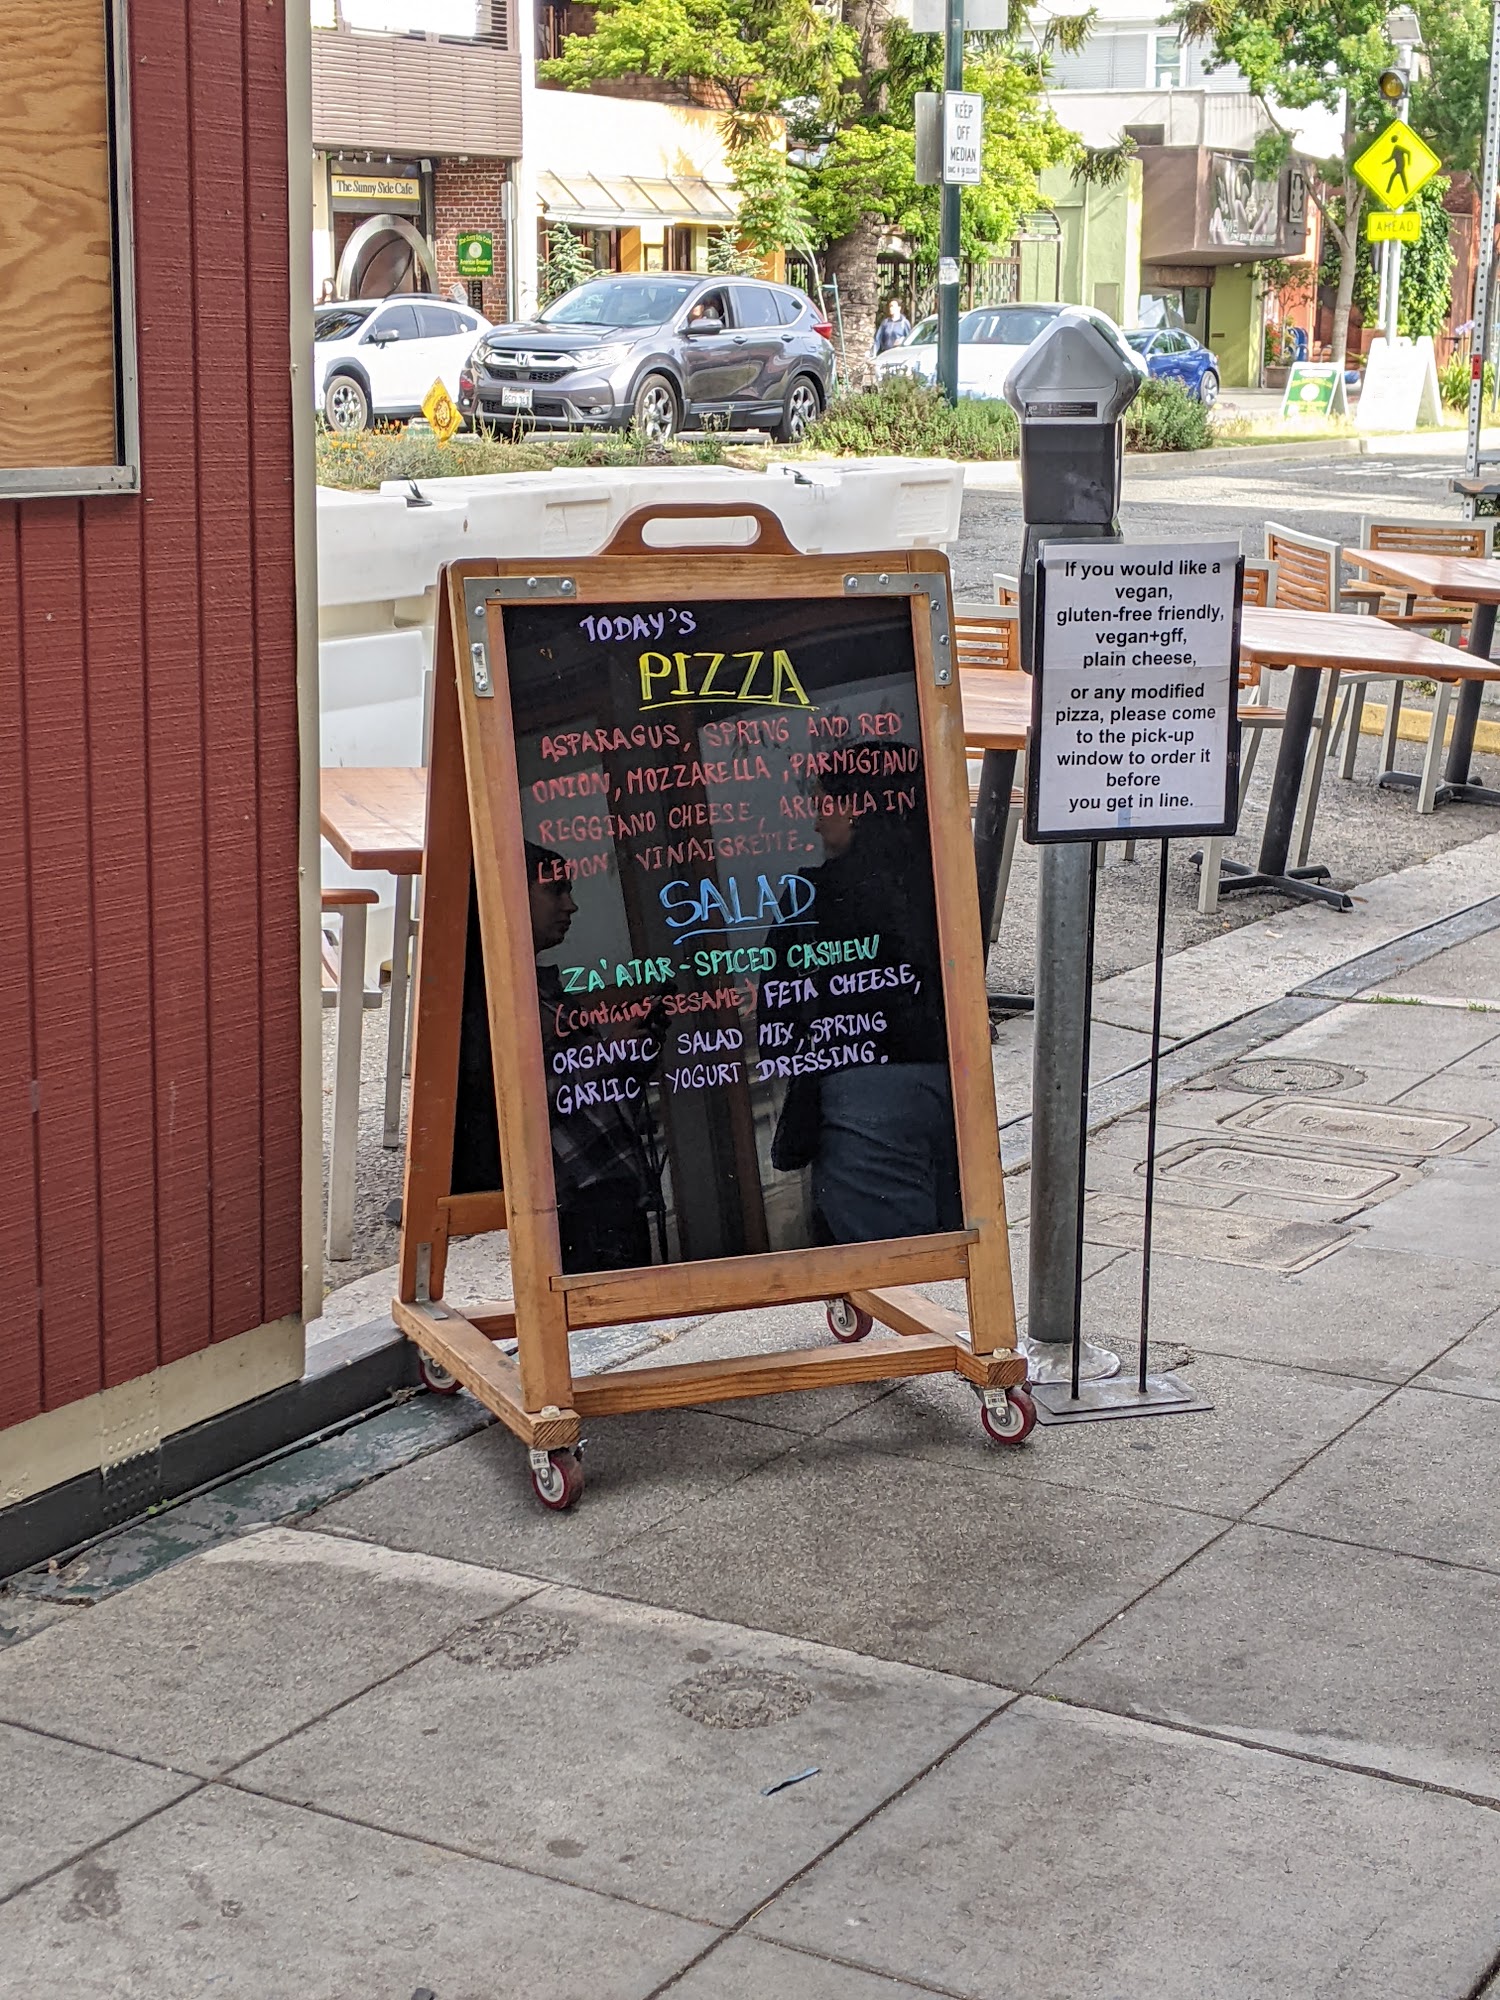 The Sunny Side Cafe
KEEP
OFF
MEDIAN
AHEAD
TODAY'S
PIZZA
ASPARAGUS, SPRING AND RED
ONION, MOZZARELLA, PARMIGIANO
REGGIANO CHEESE, ARUGULA IN
LEMON VINAIGRETTE.
SALAD
ZA'ATAR-SPICED CASHEW
(contains SESAME) FETA CHEESE,
ORGANIC SALAD MIX, SPRING
GARLIC-YOGURT DRESSING.
If you would like a
vegan,
gluten-free friendly,
vegan+gff,
plain cheese,
or any modified
pizza, please come
to the pick-up
window to order it
before
you get in line.